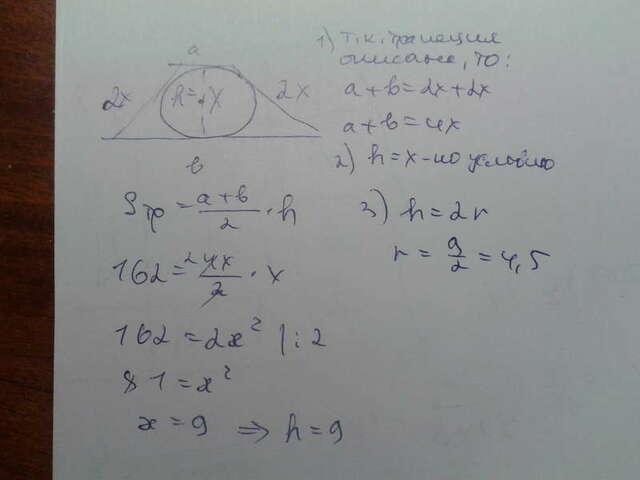 a
2x
h = x
2x
b
1) т.к. трапеция
описана, то:
a + b = 2x + 2x
a + b = 4x
2) h = x - по условию
Sтр = a + b / 2 · h
3) h = 2r
r = 9/2 = 4,5
162 = 4x / 2 · x
162 = 2x² | : 2
81 = x²
x = 9 ⇒ h = 9